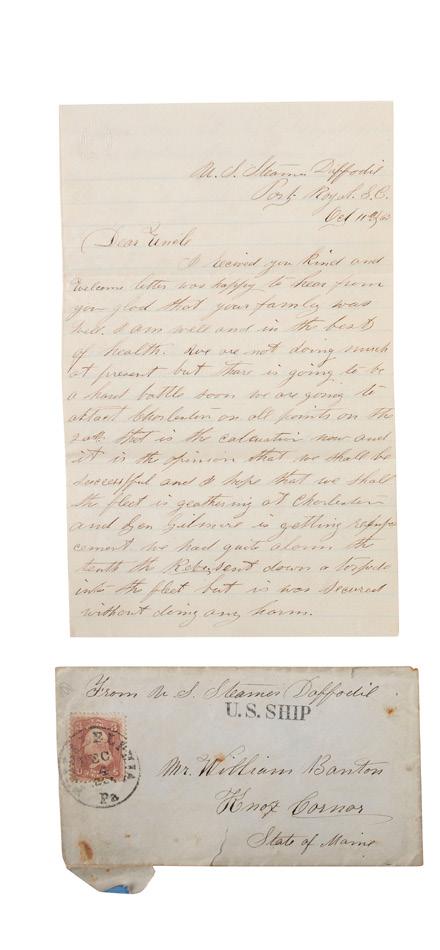 U. S. Steamer Daffodil
Port Royal. S. C.
Oct 11th/63
Dear Uncle
I recived you kind and
Welcome letter was happy to hear from
you glad that your family was
well. I am well and in the best
of health. We are not doing much
at present but thare is going to be
a hard battle soon we are going to
attact Chorleston on all points on the
20th that is the calcuation now and
it is the opinion that we shall be
successfful and I hope that we shall
the fleet is geathering at Chorleston
and Gen Gilmire is getting reinfor
cement we had quite alarm the
tenth the Rebs sent down a torpedo
into the fleet but is was secured
without doing any harm.
From U S. Steamer Daffodil
U.S. SHIP
DEC
4
Pa
Mr. William Banton
Knox Cornor
State of Maine